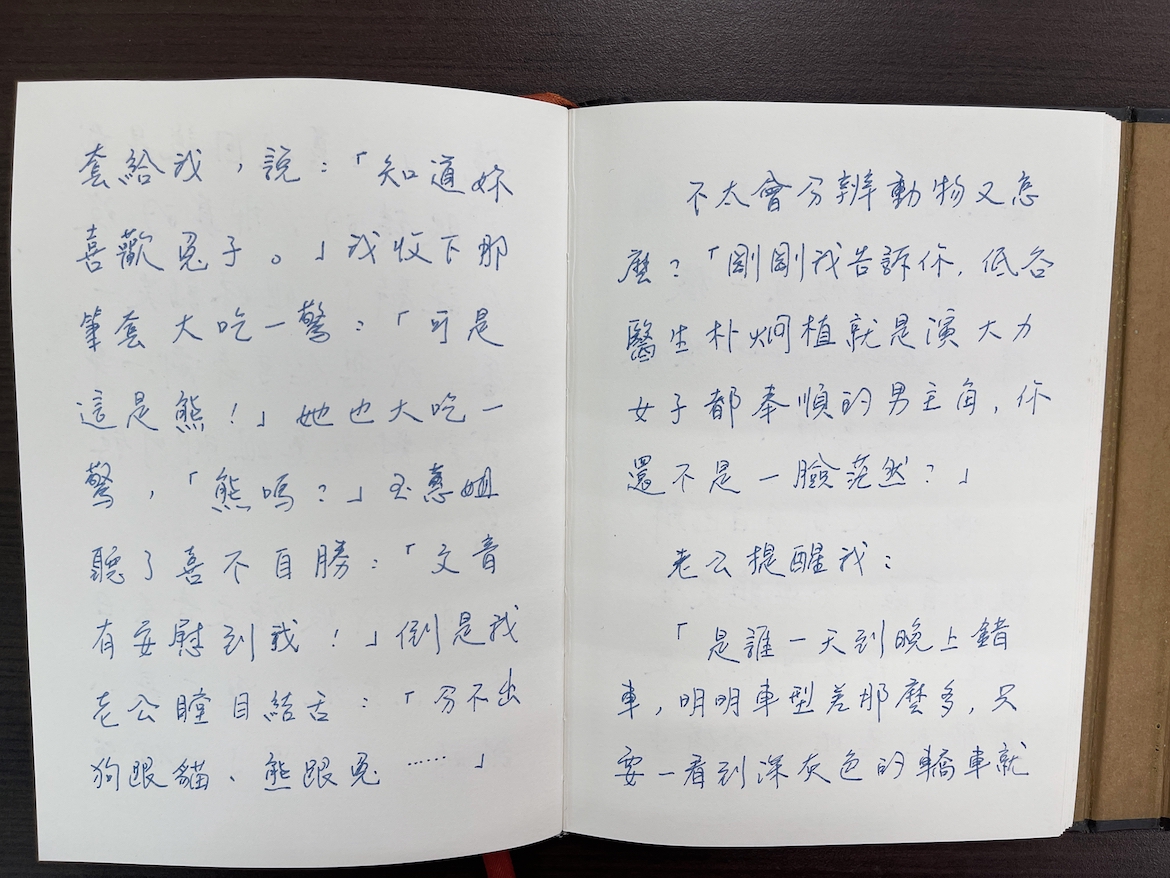 套給我，說：「知道妳
喜歡兔子。」我收下那
筆套大吃一驚：「可是
這是熊！」她也大吃一
驚，「熊嗎？」玉蕙姐
聽了喜不自勝：「文音
有安慰到我！」倒是我
老公瞠目結舌：「分不出
狗跟貓、熊跟兔⋯⋯」
不太會分辨動物又怎
麼？「剛剛我告訴你，低谷
醫生朴炯植就是演大力
女子都奉順的男主角，你
還不是一臉茫然？」
老公提醒我：
「是誰一天到晚上錯
車，明明車型差那麼多，只
要一看到深灰色的轎車就